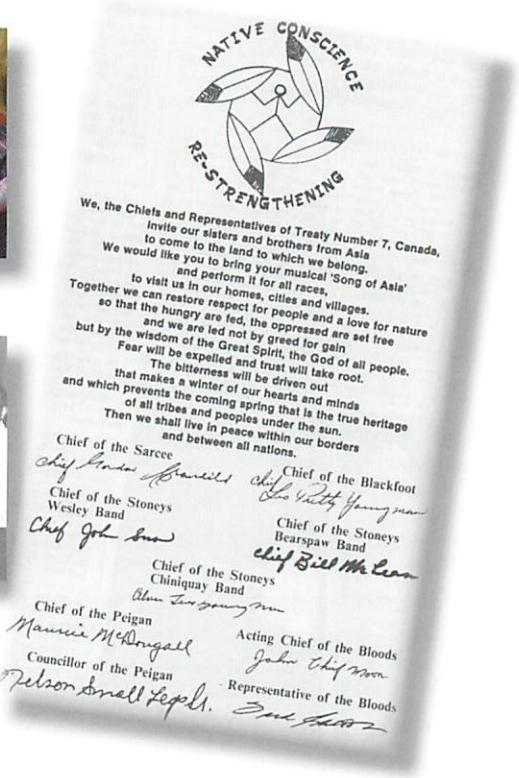 NATIVE CONSCIENCE
RE-STRENGTHENING
We, the Chiefs and Representatives of Treaty Number 7, Canada,
Invite our sisters and brothers from Asia
to come to the land to which we belong.
We would like you to bring your musical 'Song of Asia'
and perform it for all races,
to visit us in our homes, cities and villages.
Together we can restore respect for people and a love for nature
so that the hungry are fed, the oppressed are set free
and we are led not by greed for gain
but by the wisdom of the Great Spirit, the God of all people.
Fear will be expelled and trust will take root.
The bitterness will be driven out
that makes a winter of our hearts and minds
and which prevents the coming spring that is the true heritage
of all tribes and peoples under the sun.
Then we shall live in peace within our borders
and between all nations.
Chief of the Sarcee
Chief Gordon
Chief of the Blackfoot
Chief Leo Pretty Young man
Chief of the Stoneys
Wesley Band
Chief John Snow
Chief of the Stoneys
Bearspaw Band
Chief Bill McLean
Chief of the Stoneys
Chiniquay Band
Alvin Two young men
Chief of the Peigan
Maurice McDougall
Acting Chief of the Bloods
John Chief Moon
Councillor of the Peigan
Nelson Small Legs Sr.
Representative of the Bloods